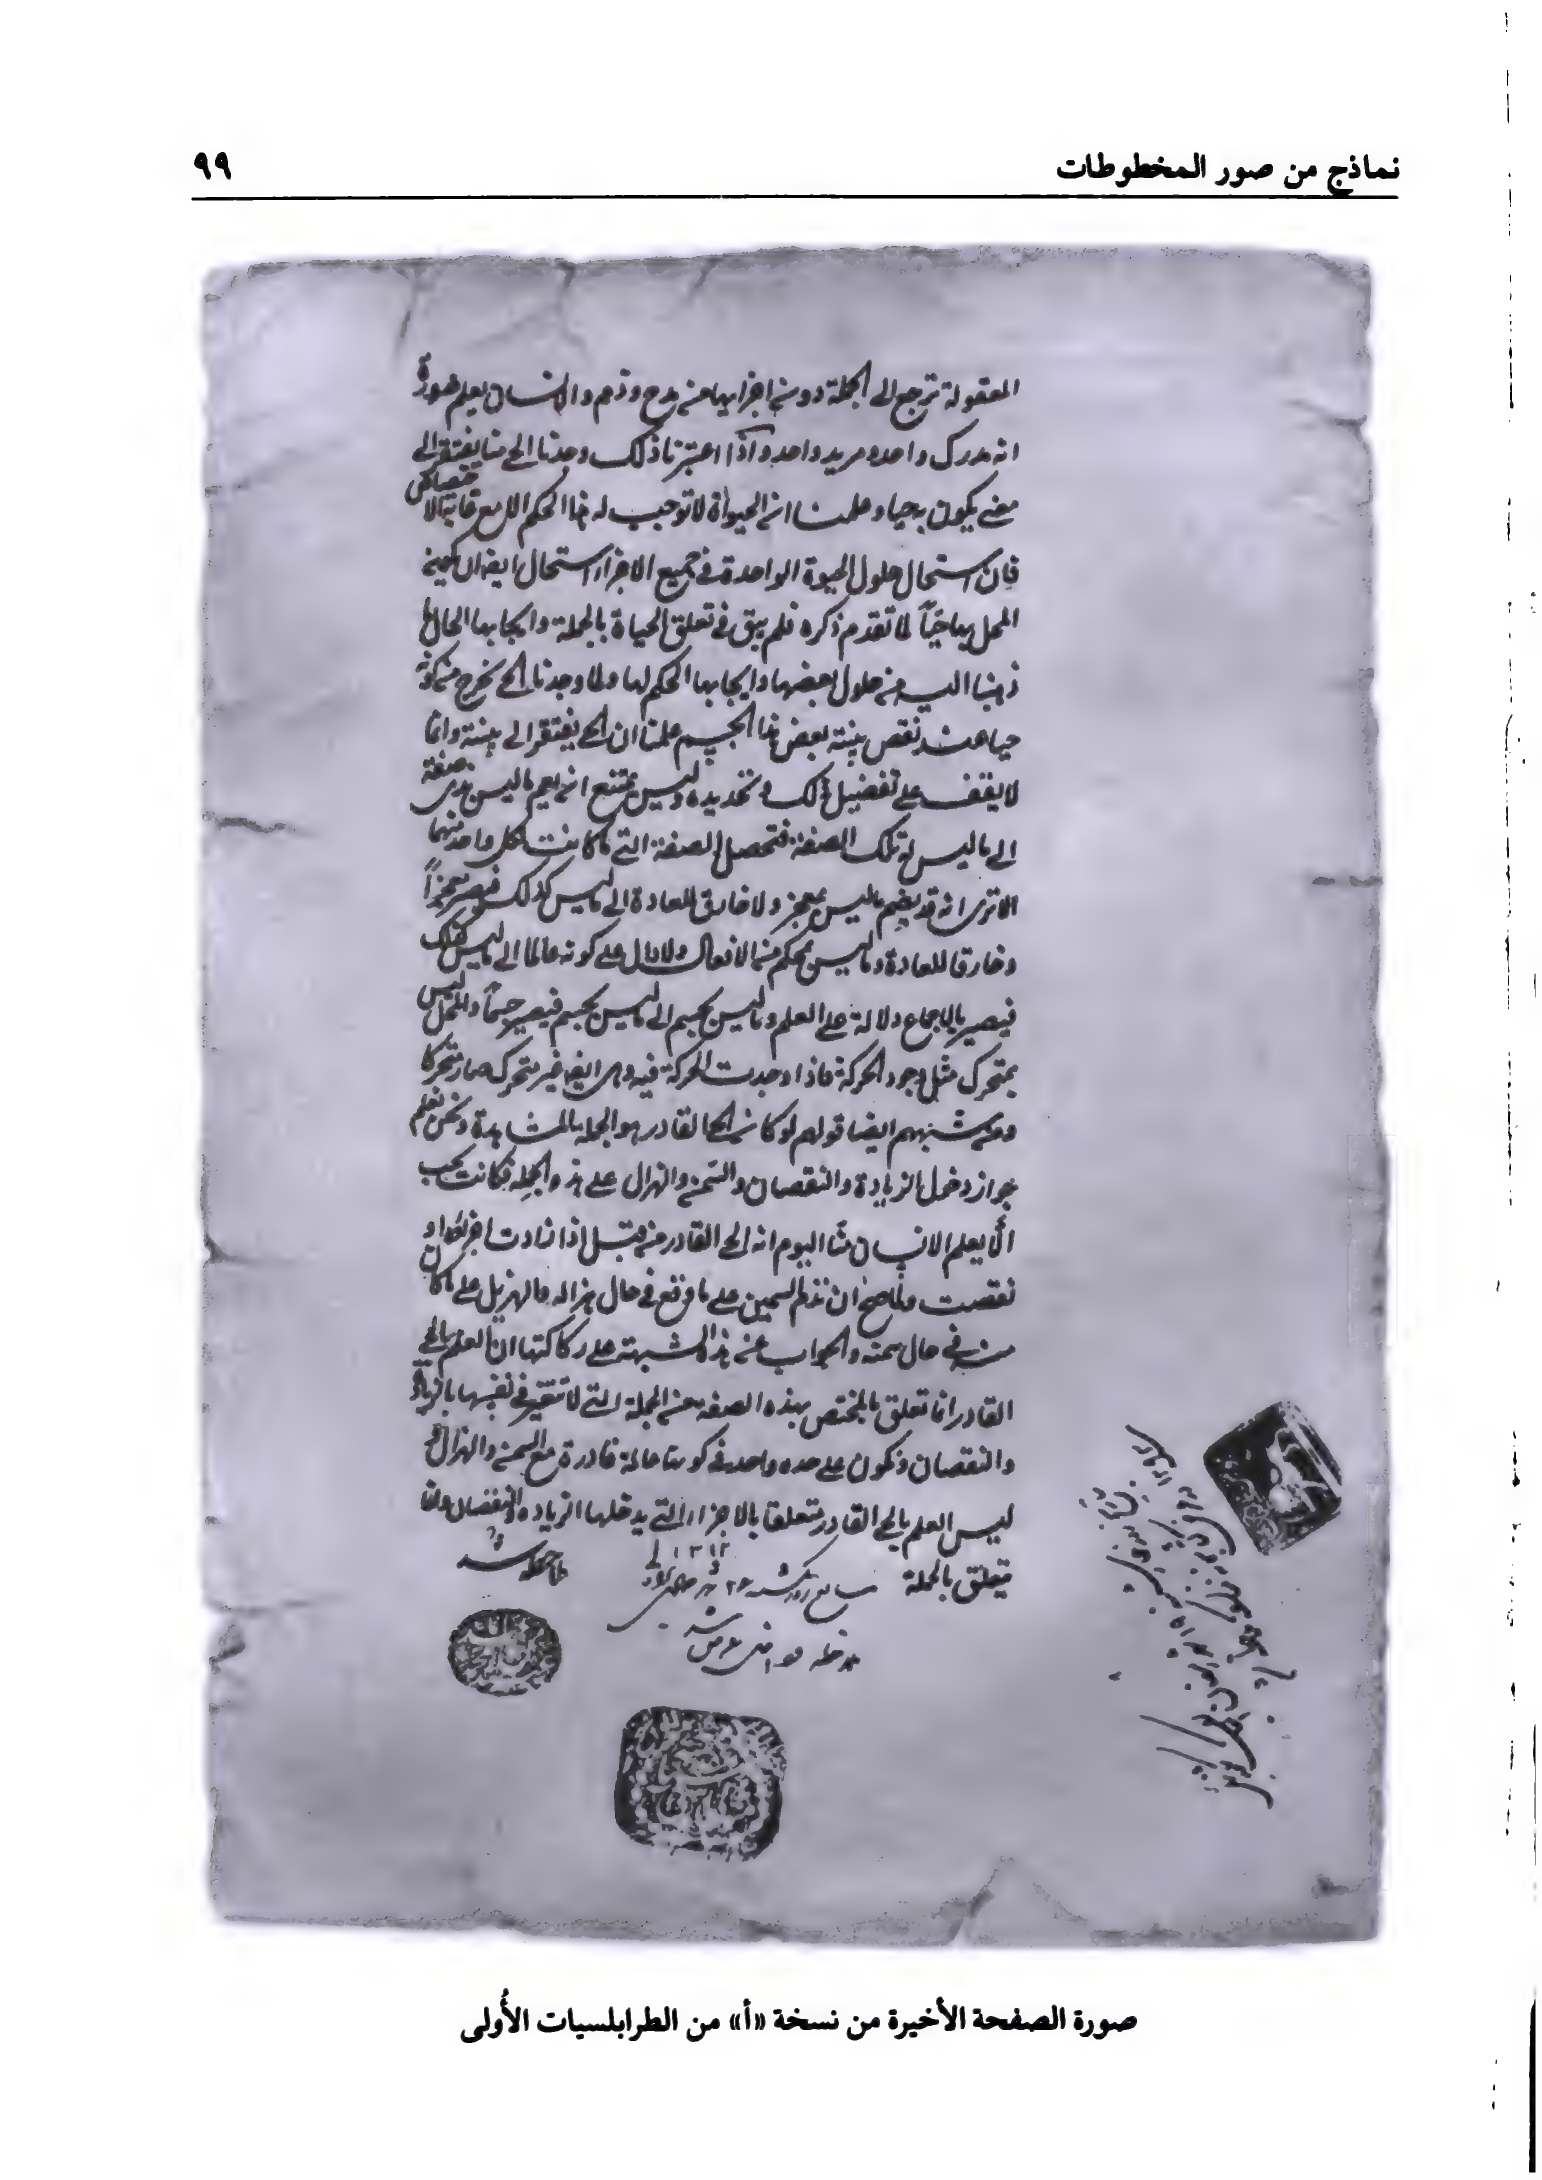 نماذج من صور المخطوطات
٩٩
المعقولة ترجع الى الجملة دون اجزايها من مدح وذم والانسان يعلم ضرورة
انه مدرك واحد ومريد واحد واذا اعتبرنا ذلك وجدنا الحي منا يفتقر الى
معنى يكون به حيا وعلمنا ان الحيوة لا توجب له هذا الحكم الا مع
فان استحال حلول الحيوة الواحدة في جميع الاجزاء استحال ايضا ان يكون
المحل بها حيّاً لما تقدم ذكره فلم يبق في تعلق الحياة بالجملة وايجابها الحال
ذهبنا اليه من حلول بعضها وايجابها الحكم لها ولما وجدنا الحي يخرج من كونه
حيا عند نقص بنية بعض هذا الجسم علمنا ان الحي يفتقر الى بنية وانما
لا يقف على تفضيل ذلك و تحديده وليس بممتنع ان يضم ما ليس بذي صفة
الى ما ليس له تلك الصفة فتحصل الصفة التي ما كانت لكل واحد منهما
الا ترى انه قد يضم ما ليس بمعجز ولا خارق للعادة الى ما ليس كذلك فيصير معجزاً
وخارقا للعادة وما ليس بمحكم من الافعال ولا دال على كونه عالما الى ما ليس كذلك
فيصير بالاجماع دلالة على العلم وما ليس بجسم الى ما ليس بجسم فيصير جسماً والمحل ليس
بمتحرك مثل وجود الحركة فاذا وجدت الحركة فيه وهي ايضا غير متحرك صار متحركا
ومن شبههم ايضا قولهم لو كان الحي القادر هو الجملة المشاهدة ونحن نعلم
جواز دخول الزيادة والنقصان والسمن والهزال على هذه الجملة فكانت يجب
الّا يعلم الانسان منّا اليوم انه الحي القادر من قبل اذا زادت اجزاؤه او
نقصت ولما صح ان نذم السمين على ما وقع في حال هزاله والهزيل على ما كان
منه في حال سمنه والجواب عن هذه الشبهة على ركاكتها ان العلم بالحي
القادر انما تعلق بالمختص بهذه الصفة من الجملة التي لا تتغير في نفسها بالزيادة
والنقصان وتكون على حده واحد في كونها عالمة قادرة مع السمن والهزال
ليس العلم بالحي القادر متعلقا بالاجزاء التي يدخلها الزياده والنقصان وانما
يتعلق بالجملة
ملاحظه شد
١٣١٢
صورة الصفحة الأخيرة من نسخة «أ» من الطرابلسيات الأُولى